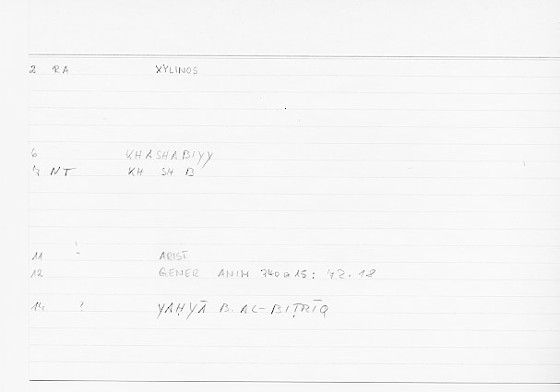 2 RA XYLINOS
6 KHASHABIYY
NT KH SH B
11 ARIST
12 GENER ANIM 740a15: 72.18
14 ? YAḤYĀ B. AL-BIṬRĪQ